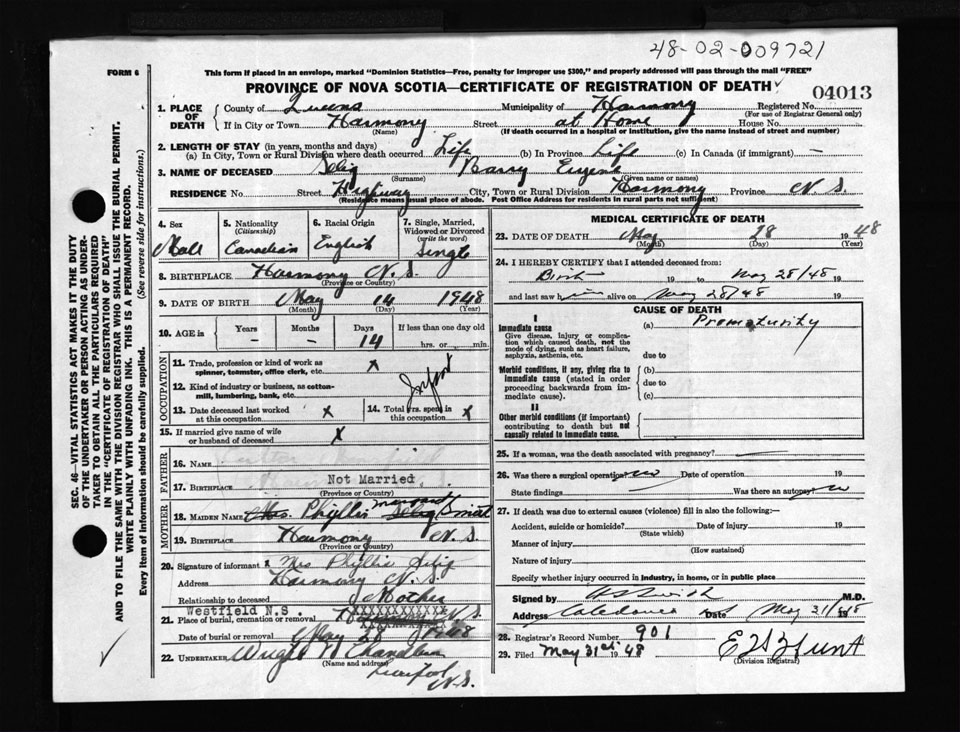 48-02-009721
FORM 6
This form if placed in an envelope, marked "Dominion Statistics—Free, penalty for improper use $300," and properly addressed will pass through the mail "FREE"
PROVINCE OF NOVA SCOTIA—CERTIFICATE OF REGISTRATION OF DEATH
04013
1. PLACE OF DEATH County of Queens Municipality of Harmony Registered No.
(For use of Registrar General only)
If in City or Town Harmony Street at Home House No.
(Name) (If death occurred in a hospital or institution, give the name instead of street and number)
2. LENGTH OF STAY (in years, months and days)
(a) In City, Town or Rural Division where death occurred Life (b) In Province Life (c) In Canada (if immigrant) —
3. NAME OF DECEASED Selig Barry Eugene
(Surname) (Given name or names)
RESIDENCE No. Street Highway City, Town or Rural Division Harmony Province N.S.
(Residence means usual place of abode. Post Office Address for residents in rural parts not sufficient)
4. Sex 5. Nationality (Citizenship) 6. Racial Origin 7. Single, Married, Widowed or Divorced (write the word)
Male Canadian English Single
8. BIRTHPLACE Harmony N.S.
(Province or Country)
9. DATE OF BIRTH May 14 1948
(Month) (Day) (Year)
10. AGE in Years Months Days If less than one day old
– – 14 hrs. or min.
OCCUPATION
11. Trade, profession or kind of work as spinner, teamster, office clerk, etc. x
Infant
12. Kind of industry or business, as cotton-mill, lumbering, bank, etc.
13. Date deceased last worked at this occupation x 14. Total yrs. spent in this occupation x
15. If married give name of wife or husband of deceased x
FATHER
16. NAME
Not Married.
17. BIRTHPLACE
(Province or Country)
MOTHER
18. MAIDEN NAME Mrs. Phyllis Selig
19. BIRTHPLACE Harmony N.S.
(Province or Country)
20. Signature of informant x Mrs Phyllis Selig
Address Harmony N.S.
Relationship to deceased Mother
Westfield N.S. XXXXXXXXXXX N.S.
21. Place of burial, cremation or removal
Date of burial or removal May 28 1948
22. UNDERTAKER Wright W Chandler
(Name and address)
Liverpool
N.S.
MEDICAL CERTIFICATE OF DEATH
23. DATE OF DEATH May 28 1948
(Month) (Day) (Year)
24. I HEREBY CERTIFY that I attended deceased from:
Birth 19 to May 28/48 19
and last saw him alive on May 28/48 19
CAUSE OF DEATH
I
Immediate cause (a) Prematurity
Give disease, injury or complication which caused death, not the mode of dying, such as heart failure, asphyxia, asthenia, etc.
due to
Morbid conditions, if any, giving rise to immediate cause (stated in order proceeding backwards from immediate cause).
(b)
due to
(c)
II
Other morbid conditions (if important) contributing to death but not causally related to immediate cause.
25. If a woman, was the death associated with pregnancy? —
26. Was there a surgical operation no Date of operation 19
State findings Was there an autopsy no
27. If death was due to external causes (violence) fill in also the following:—
Accident, suicide or homicide? Date of injury 19
(State which)
Manner of injury
(How sustained)
Nature of injury
Specify whether injury occurred in industry, in home, or in public place
Signed by M.D.
Address Caledonia Date May 31/48 19
28. Registrar's Record Number 901
29. Filed May 31st 1948
(Division Registrar)
SEC. 46—VITAL STATISTICS ACT MAKES IT THE DUTY OF THE UNDERTAKER OR PERSON ACTING AS UNDERTAKER TO OBTAIN ALL THE PARTICULARS REQUIRED IN THE "CERTIFICATE OF REGISTRATION OF DEATH" AND TO FILE THE SAME WITH THE DIVISION REGISTRAR WHO SHALL ISSUE THE BURIAL PERMIT.
WRITE PLAINLY WITH UNFADING INK. THIS IS A PERMANENT RECORD.
Every item of information should be carefully supplied. (See reverse side for instructions.)